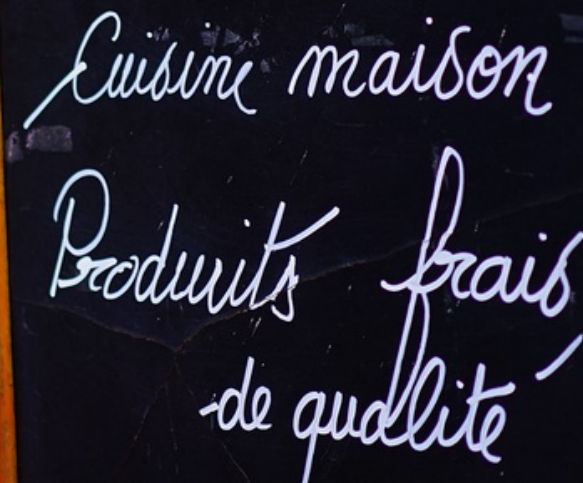 Cuisine maison
Produits frais
de qualité